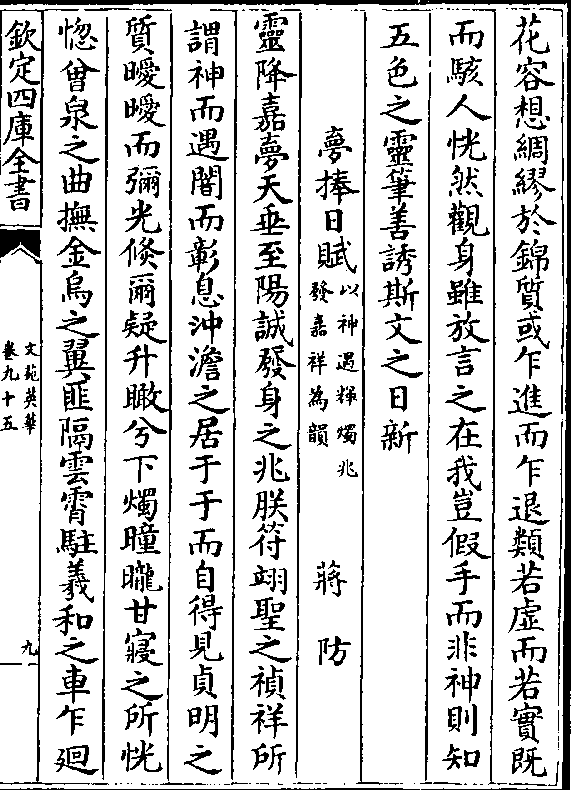 花容想綢繆於錦質或乍進而乍退類若虚而若實既
而駭人恍然觀身雖放言之在我豈假手而非神則知
五色之靈筆善誘斯文之日新
夢捧日賦以神遇輝燭兆發嘉祥為韻 蔣防
靈降嘉夢天垂至陽誠發身之兆朕符翊聖之禎祥所
謂神而遇闇而彰息沖澹之居于于而自得見貞明之
質曖曖而彌光倐爾疑升瞰兮下燭瞳曨甘寢之所恍
惚曾泉之曲撫金烏之翼匪隔雲霄駐羲和之車乍廻
欽定四庫全書
文苑英華
卷九十五
九